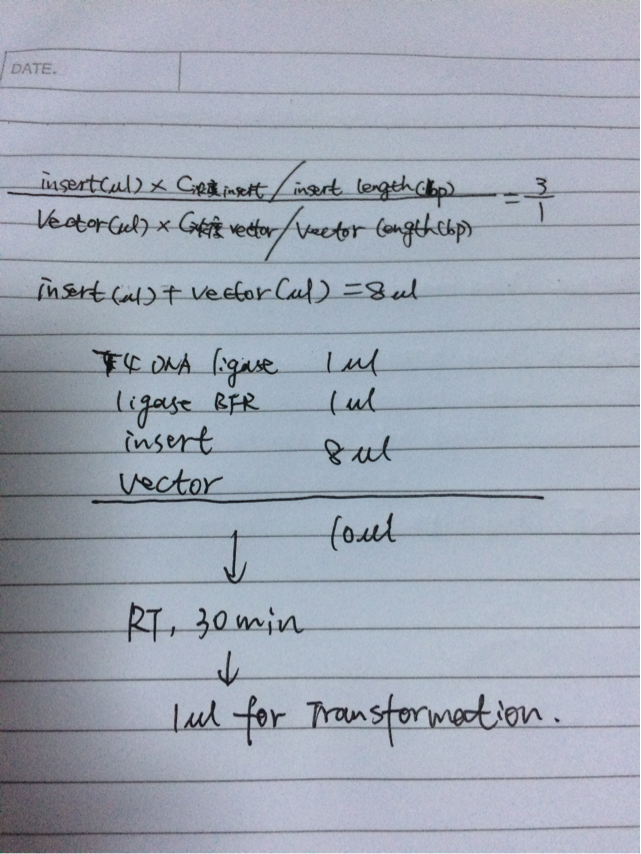 DATE.
insert(ul) × C浓度insert / insert length(bp)
Vector(ul) × C浓度 vector / Vector length(bp)
= 3
1
insert (ul) + vector (ul) = 8ul
T4 DNA ligase 1 ul
ligase BFR 1 ul
insert 8 ul
vector
↓ 10ul
RT, 30 min
↓
1ul for Transformation.